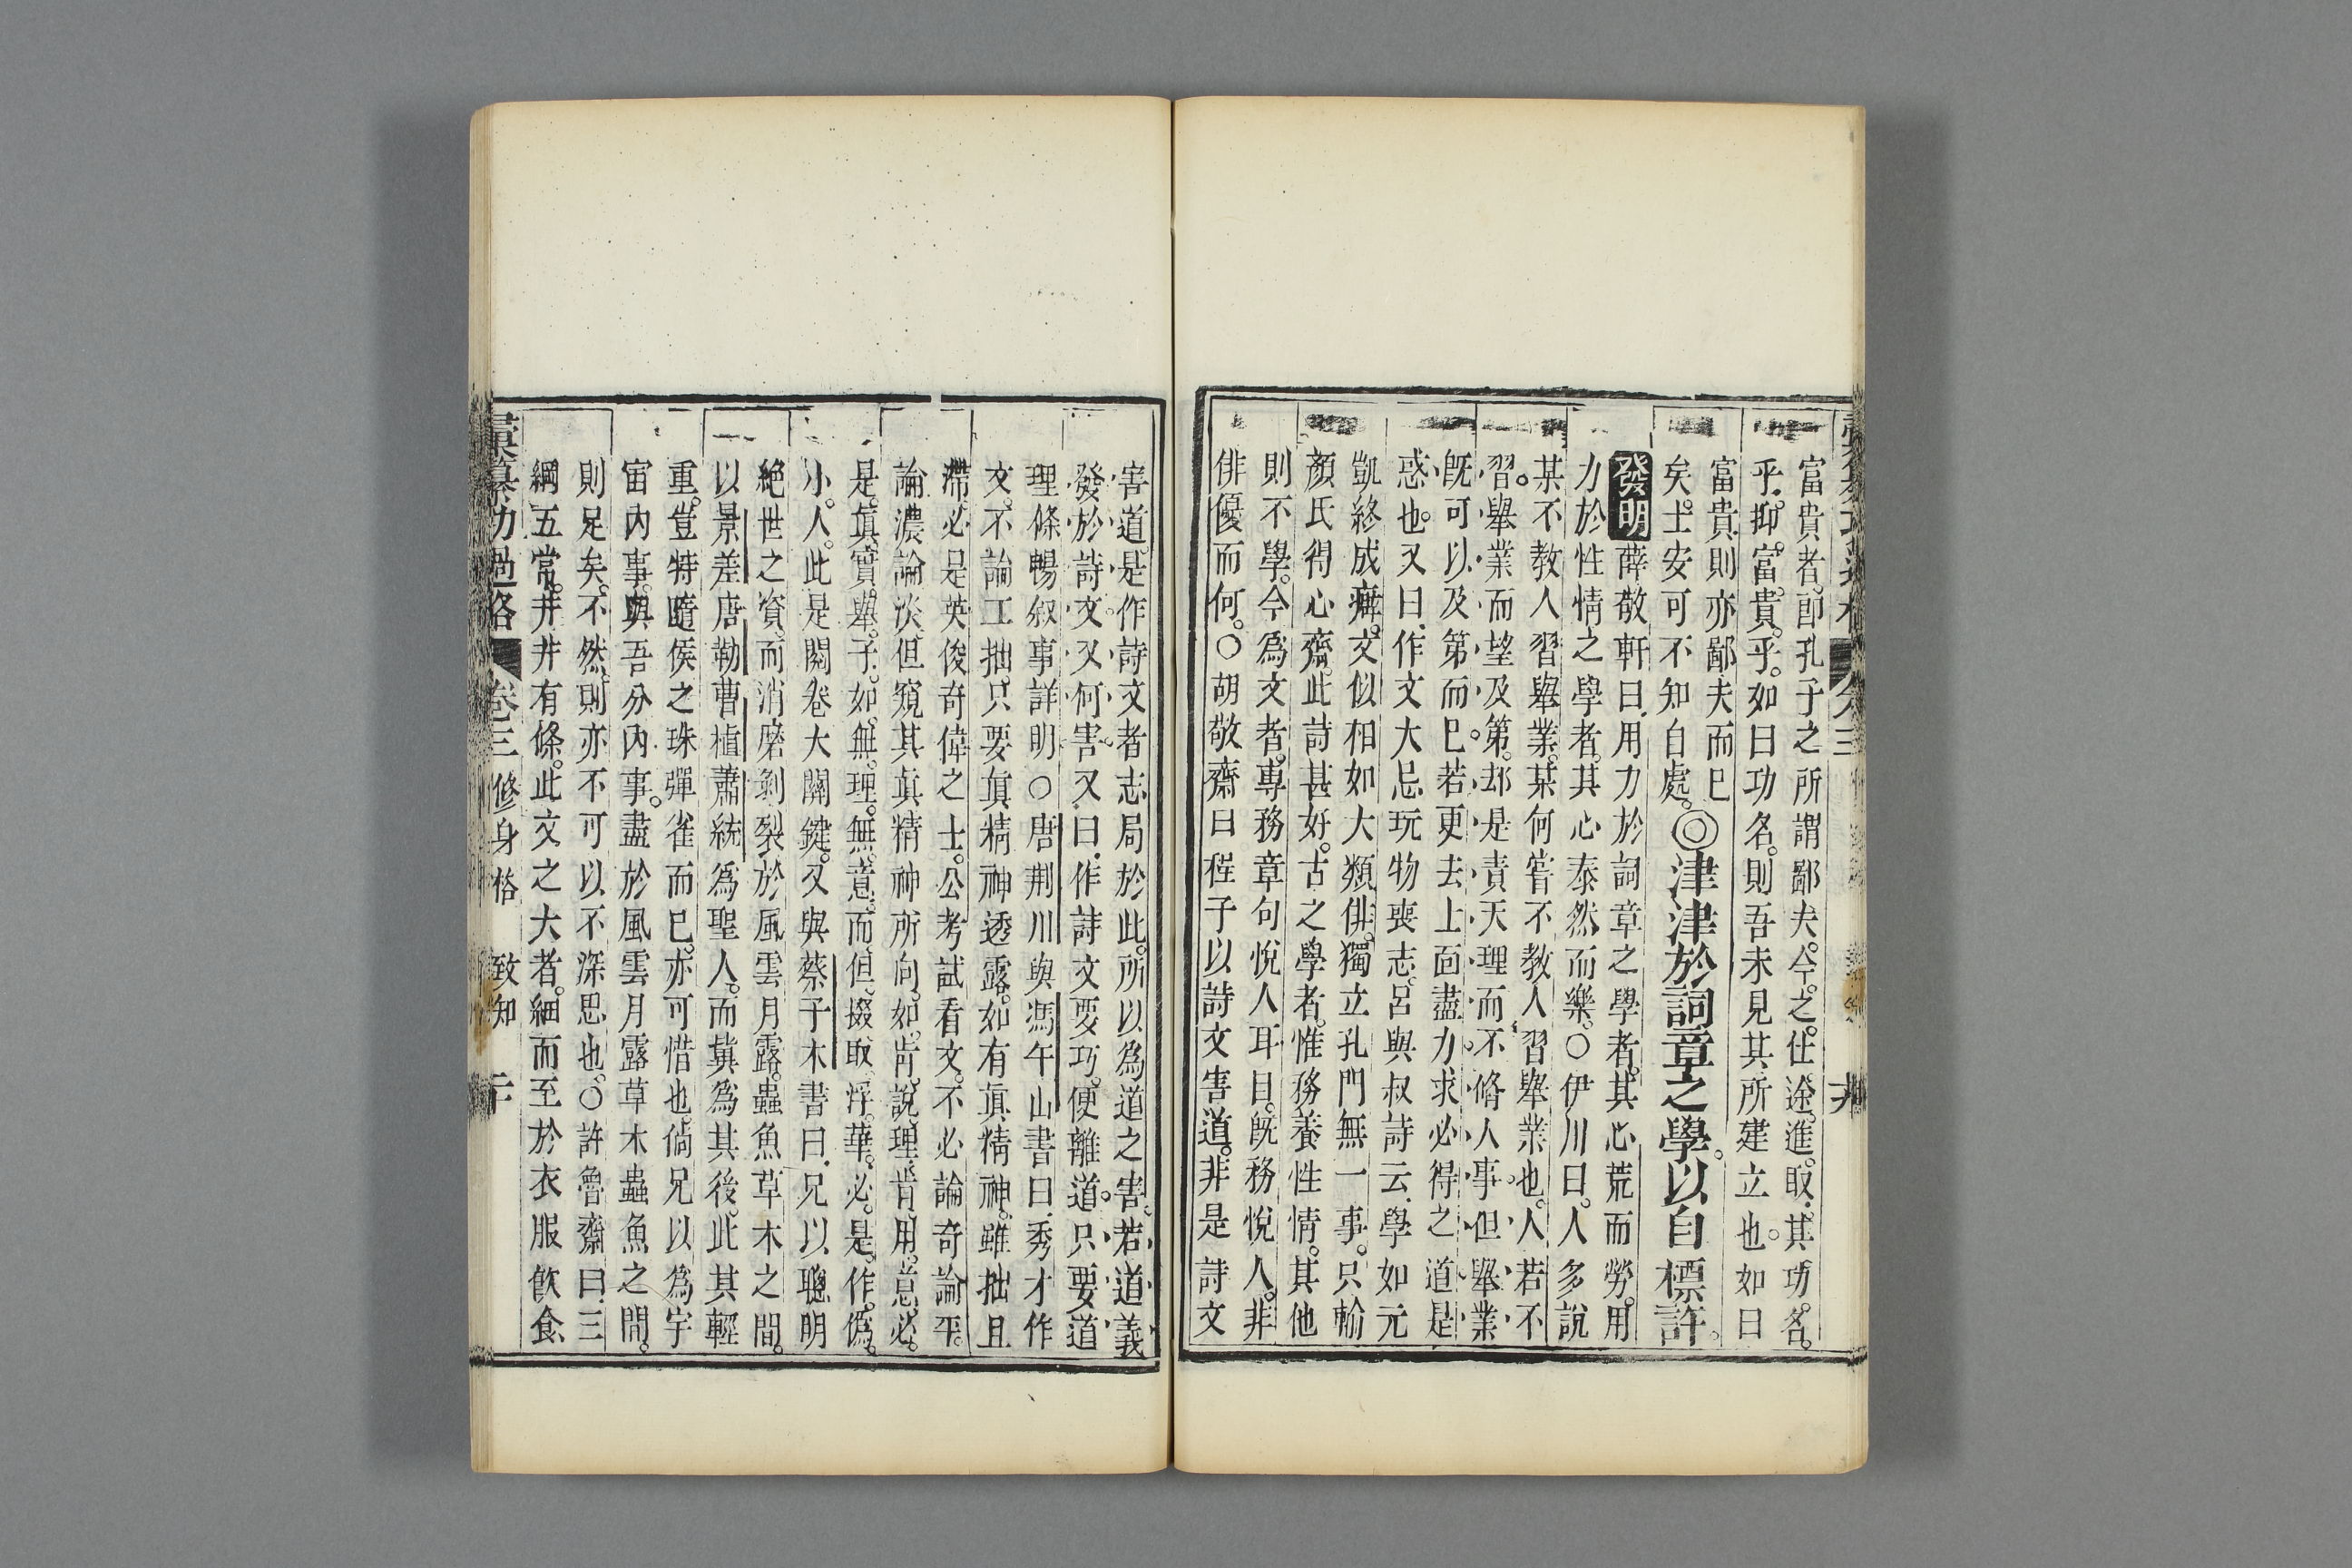 富貴者。即孔子之所謂鄙夫。今之仕途。進取。其功名。
乎。抑富貴乎。如曰功名。則吾未見其所建立也。如曰
富貴。則亦鄙夫而已
矣。士安可不知自處。◎津津於詞章之學。以自標許。
發明 薛敬軒曰。用力於詞章之學者。其心荒而勞。用
力於性情之學者。其心泰然而樂。○伊川曰。人多說
某不教人習舉業。某何嘗不教人習舉業也。人若不
習舉業而望及第。却是責天理而不脩人事。但舉業
旣可以及第而已。若更去上面盡力求必得之道。是
惑也。又曰。作文大忌玩物喪志。呂與叔詩云。學如元
凱終成癖。文似相如大類俳。獨立孔門無一事。只輸
顏氏得心齋。此詩甚好。古之學者。惟務養性情。其他
則不學。今爲文者。專務章句悅人耳目。旣務悅人。非
俳優而何。○胡敬齋曰程子以詩文害道。非是詩文
害道。是作詩文者志局於此。所以爲道之害。若道義
發於詩文。又何害。又曰。作詩文要巧。便離道。只要道
理條暢。叙事詳明。○唐荆川與馮午山書曰。秀才作
文。不論工拙。只要眞精神透露。如有眞精神。雖拙且
滯。必是英俊奇偉之士。公考試看文。不必論奇論平。
論濃論淡。但窺其眞精神所向。如肯說理肯用意。必
是眞實舉子。如無理無意。而但掇取浮華。必是作僞
小人。此是閱卷大關鍵。又與蔡子木書曰。兄以聰明
絶世之資。而消磨剝裂於風雲月露。蟲魚草木之間。
以景差唐勒曹植蕭統爲聖人。而冀爲其後。此其輕
重。豈特隨侯之珠彈雀而已。亦可惜也。倘兄以爲宇
宙內事。與吾分內事。盡於風雲月露草木蟲魚之間。
則足矣。不然。則亦不可以不深思也。○許魯齋曰。三
綱五常。井井有條。此文之大者。細而至於衣服飲食
彙纂功過格 卷三 修身格 致知 二十